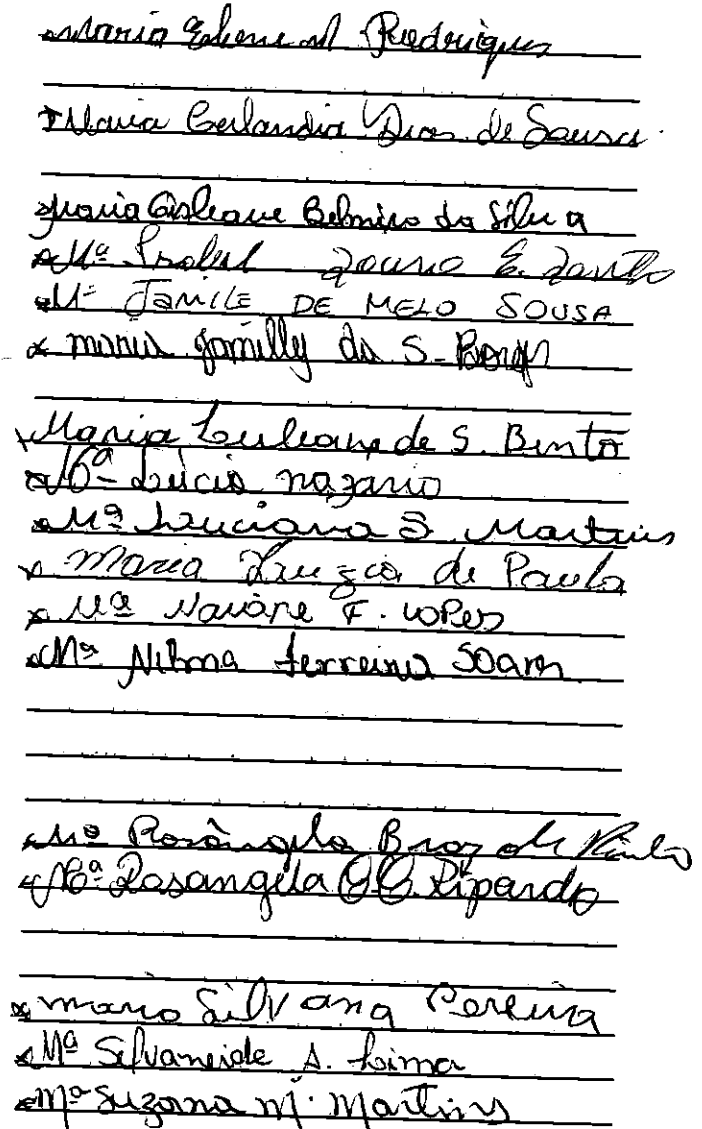 Maria Eliene M Rodrigues
Maria Gerlandia Dias de Sousa
Maria Gisleane Belmiro da Silva
Mª Izabel E. Santo
Mª JAMILE DE MELO SOUSA
maria Jamilly da S. Borges
Maria Luleane de S. Bento
Mª Lúcia nazario
Mª Luciana S Martins
Maria Luzia de Paula
Mª Naiane F. LOPES
Mª Nilma ferreira Soares
Mª Rosângela Braz de Paulo
Mª Rosangela Ripardo
maria Silvana Pereira
Mª Silvaneide A. Lima
Mª Suzana M. Martins